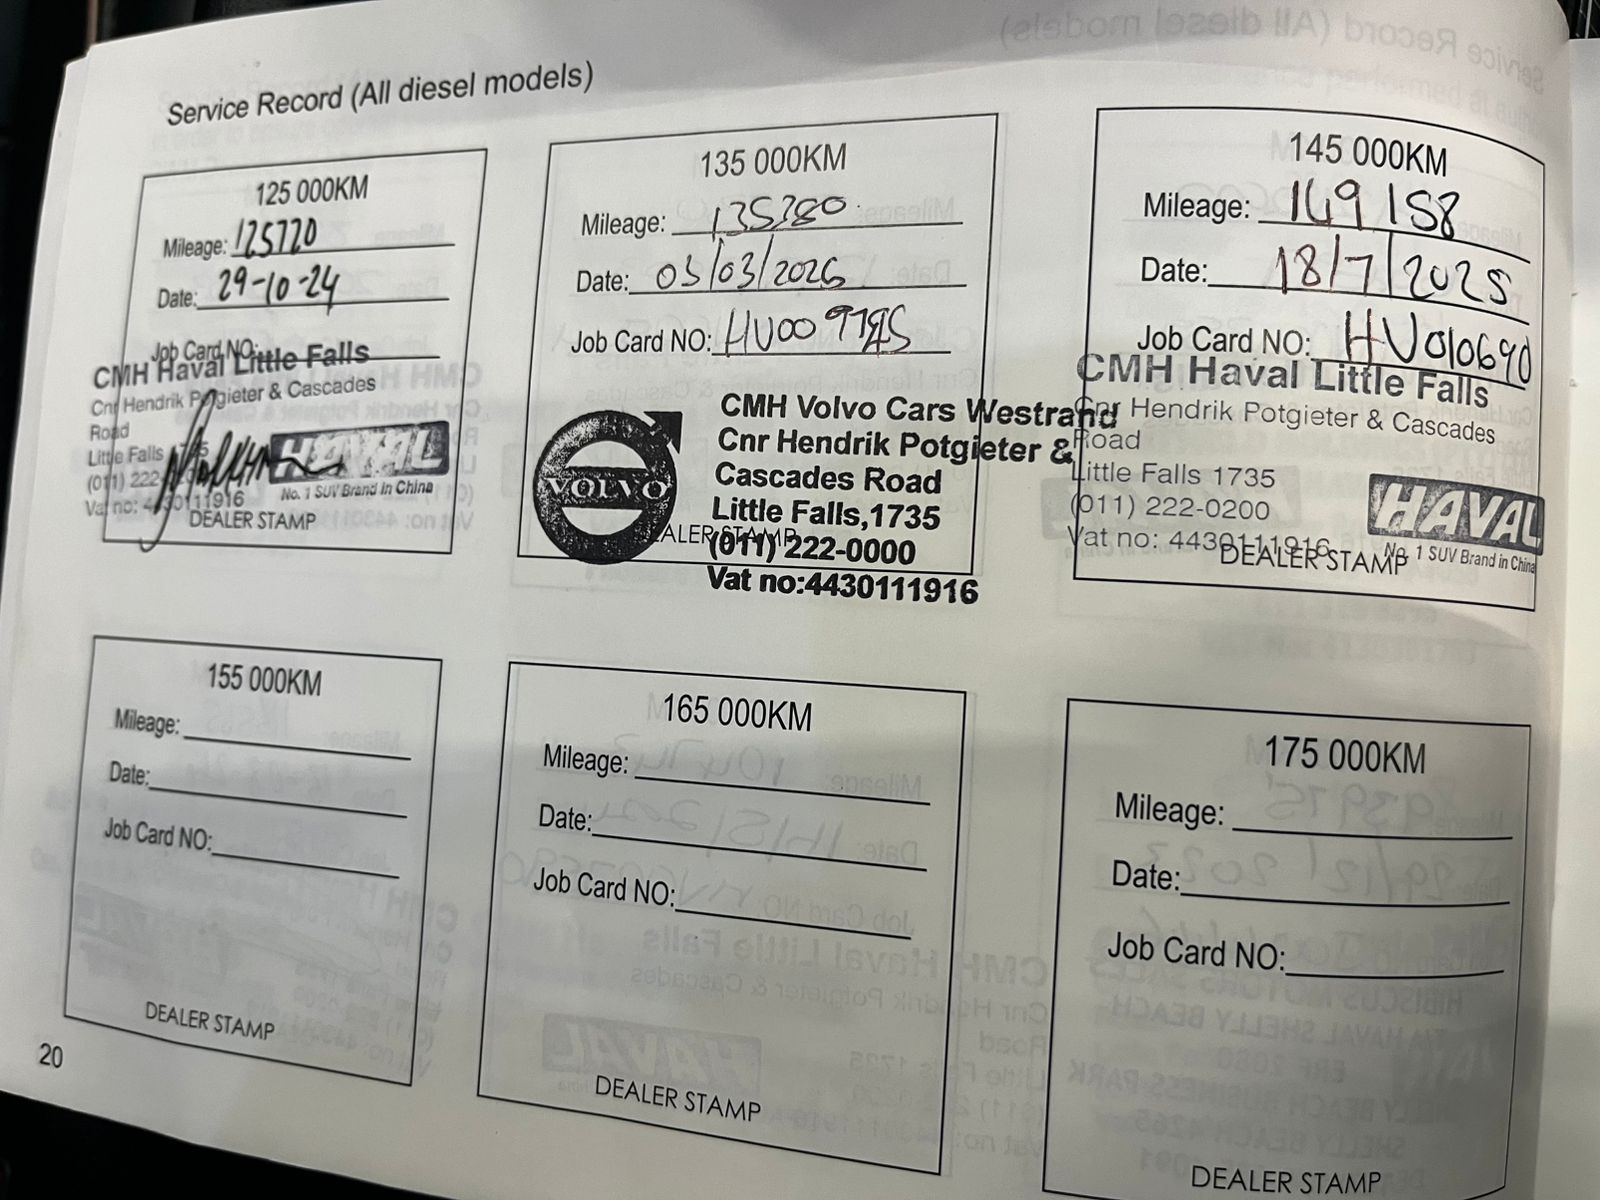 Service Record (All diesel models)
125 000KM
Mileage: 125720
Date: 29-10-24
Job Card NO:
CMH Haval Little Falls
Cnr Hendrik Potgieter & Cascades
Road
Little Falls
(011) 222
Vat no: 4430111916
HAVAL
No. 1 SUV Brand in China
DEALER STAMP
135 000KM
Mileage: 135280
Date: 03/03/2025
Job Card NO:
VOLVO
CMH Volvo Cars Westrand
Cnr Hendrik Potgieter &
Cascades Road
Little Falls,1735
(011) 222-0000
Vat no:4430111916
DEALER STAMP
145 000KM
Mileage: 149158
Date: 18/7/2025
Job Card NO: HV010690
CMH Haval Little Falls
Cnr Hendrik Potgieter & Cascades
Road
Little Falls 1735
(011) 222-0200
Vat no: 4430111916
HAVAL
No. 1 SUV Brand in China
DEALER STAMP
155 000KM
Mileage:
Date:
Job Card NO:
DEALER STAMP
165 000KM
Mileage:
Date:
Job Card NO:
DEALER STAMP
175 000KM
Mileage:
Date:
Job Card NO:
DEALER STAMP
20